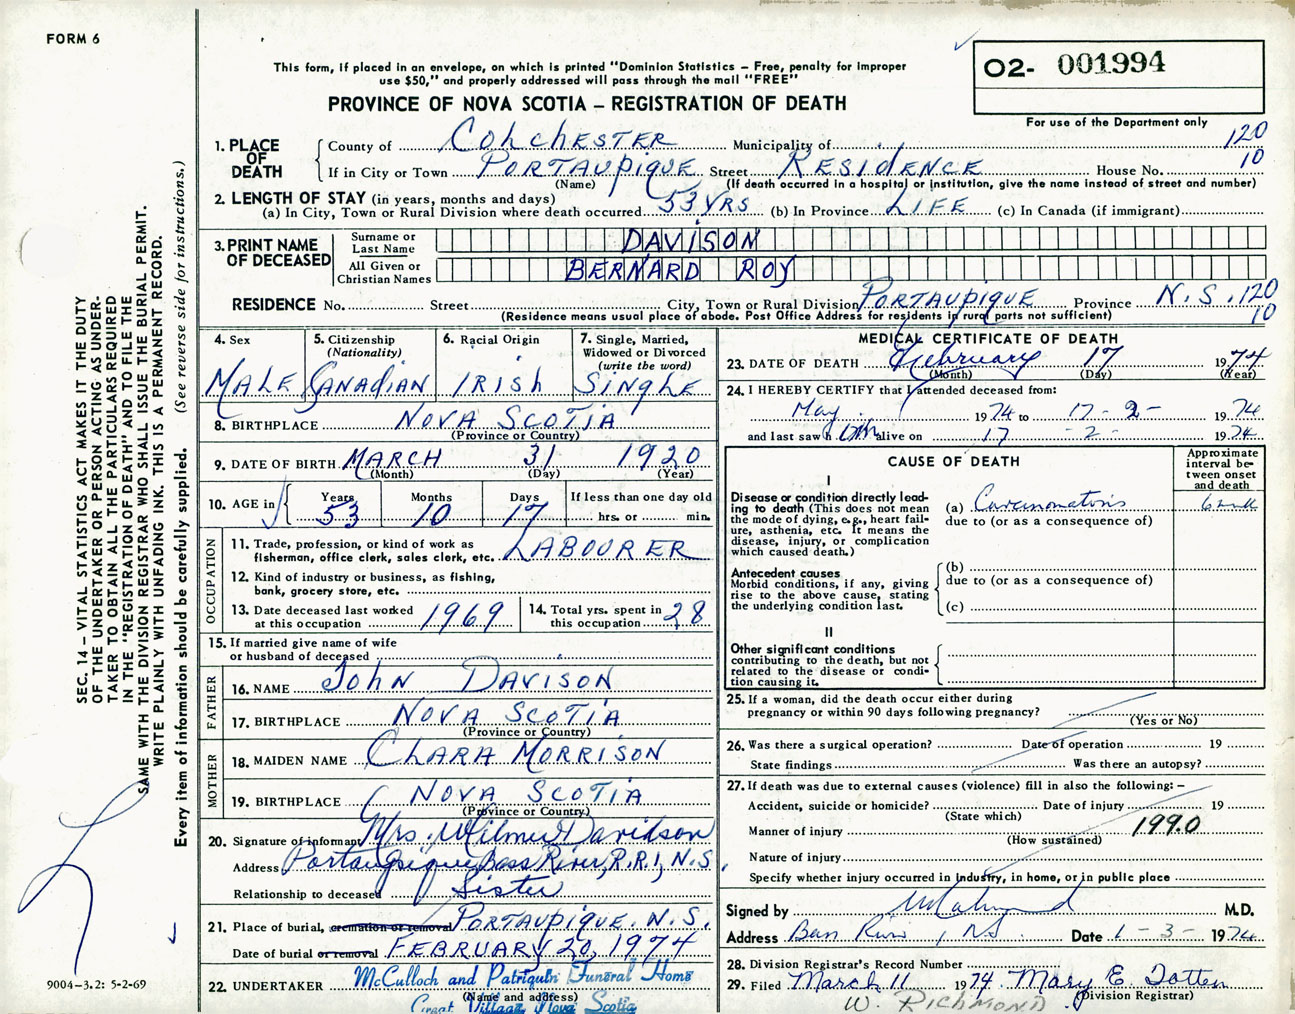 FORM 6
This form, if placed in an envelope, on which is printed "Dominion Statistics – Free, penalty for improper
use $50," and properly addressed will pass through the mail "FREE"
PROVINCE OF NOVA SCOTIA – REGISTRATION OF DEATH
02- 001994
For use of the Department only
1. PLACE OF DEATH
County of COLCHESTER Municipality of
120
If in City or Town PORTAUPIQUE Street RESIDENCE House No.
10
(Name) (If death occurred in a hospital or institution, give the name instead of street and number)
2. LENGTH OF STAY (in years, months and days)
(a) In City, Town or Rural Division where death occurred 53 YRS (b) In Province LIFE (c) In Canada (if immigrant)
3. PRINT NAME OF DECEASED
Surname or Last Name DAVISON
All Given or Christian Names BERNARD ROY
RESIDENCE No. Street City, Town or Rural Division PORTAUPIQUE Province N.S. 120
10
(Residence means usual place of abode. Post Office Address for residents in rural parts not sufficient)
4. Sex
MALE
5. Citizenship
(Nationality)
CANADIAN
6. Racial Origin
IRISH
7. Single, Married,
Widowed or Divorced
(write the word)
SINGLE
8. BIRTHPLACE NOVA SCOTIA
(Province or Country)
9. DATE OF BIRTH MARCH 31 1920
(Month) (Day) (Year)
10. AGE in
Years Months Days If less than one day old
53 10 17 hrs. or min.
OCCUPATION
11. Trade, profession, or kind of work as
fisherman, office clerk, sales clerk, etc. LABOURER
12. Kind of industry or business, as fishing,
bank, grocery store, etc.
13. Date deceased last worked
at this occupation 1969
14. Total yrs. spent in
this occupation 28
15. If married give name of wife
or husband of deceased
FATHER
16. NAME JOHN DAVISON
17. BIRTHPLACE NOVA SCOTIA
(Province or Country)
MOTHER
18. MAIDEN NAME CLARA MORRISON
19. BIRTHPLACE NOVA SCOTIA
(Province or Country)
20. Signature of informant Mrs. Wilmer Davidson
Address Portaupique, Bass River, R.R.1, N.S.
Relationship to deceased Sister
21. Place of burial, cremation or removal PORTAUPIQUE. N.S.
Date of burial or removal FEBRUARY 20, 1974
22. UNDERTAKER McCulloch and Patriquin Funeral Home
(Name and address)
Great Village, Nova Scotia
MEDICAL CERTIFICATE OF DEATH
23. DATE OF DEATH February 17 1974
(Month) (Day) (Year)
24. I HEREBY CERTIFY that I attended deceased from:
May 1974 to 17-2- 1974
and last saw h im alive on 17 -2- 1974
CAUSE OF DEATH
Approximate
interval be-
tween onset
and death
I
Disease or condition directly lead-
ing to death (This does not mean
the mode of dying, e.g., heart fail-
ure, asthenia, etc. It means the
disease, injury, or complication
which caused death.)
(a) Carcinomatosis
due to (or as a consequence of)
Antecedent causes
Morbid conditions, if any, giving
rise to the above cause, stating
the underlying condition last.
(b)
due to (or as a consequence of)
(c)
II
Other significant conditions
contributing to the death, but not
related to the disease or condi-
tion causing it.
25. If a woman, did the death occur either during
pregnancy or within 90 days following pregnancy?
(Yes or No)
26. Was there a surgical operation? Date of operation 19
State findings Was there an autopsy?
27. If death was due to external causes (violence) fill in also the following: –
Accident, suicide or homicide? Date of injury 19
(State which)
Manner of injury 199.0
(How sustained)
Nature of injury
Specify whether injury occurred in industry, in home, or in public place
Signed by M.D.
Address Bass River, NS Date 1-3- 1974
28. Division Registrar's Record Number
29. Filed March 11 1974 Mary E. Totten
(Division Registrar)
W. RICHMOND
SEC. 14 – VITAL STATISTICS ACT MAKES IT THE DUTY
OF THE UNDERTAKER OR PERSON ACTING AS UNDER-
TAKER TO OBTAIN ALL THE PARTICULARS REQUIRED
IN THE "REGISTRATION OF DEATH" AND TO FILE THE
SAME WITH THE DIVISION REGISTRAR WHO SHALL ISSUE THE BURIAL PERMIT.
WRITE PLAINLY WITH UNFADING INK. THIS IS A PERMANENT RECORD.
Every item of information should be carefully supplied. (See reverse side for instructions.)
9004-3.2: 5-2-69